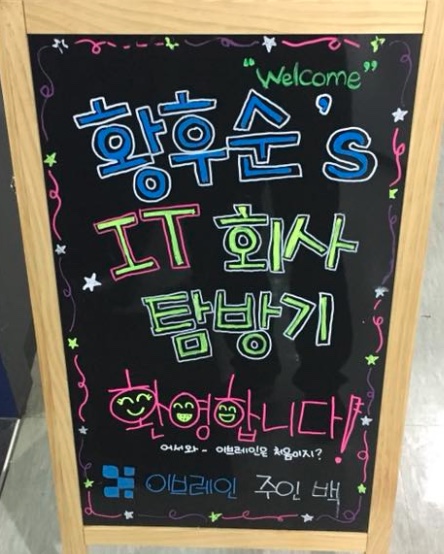 “Welcome”
황후순's
IT 회사
탐방기
환영합니다!
어서와 ~ 이브레인은 처음이지?
이브레인 주인 백